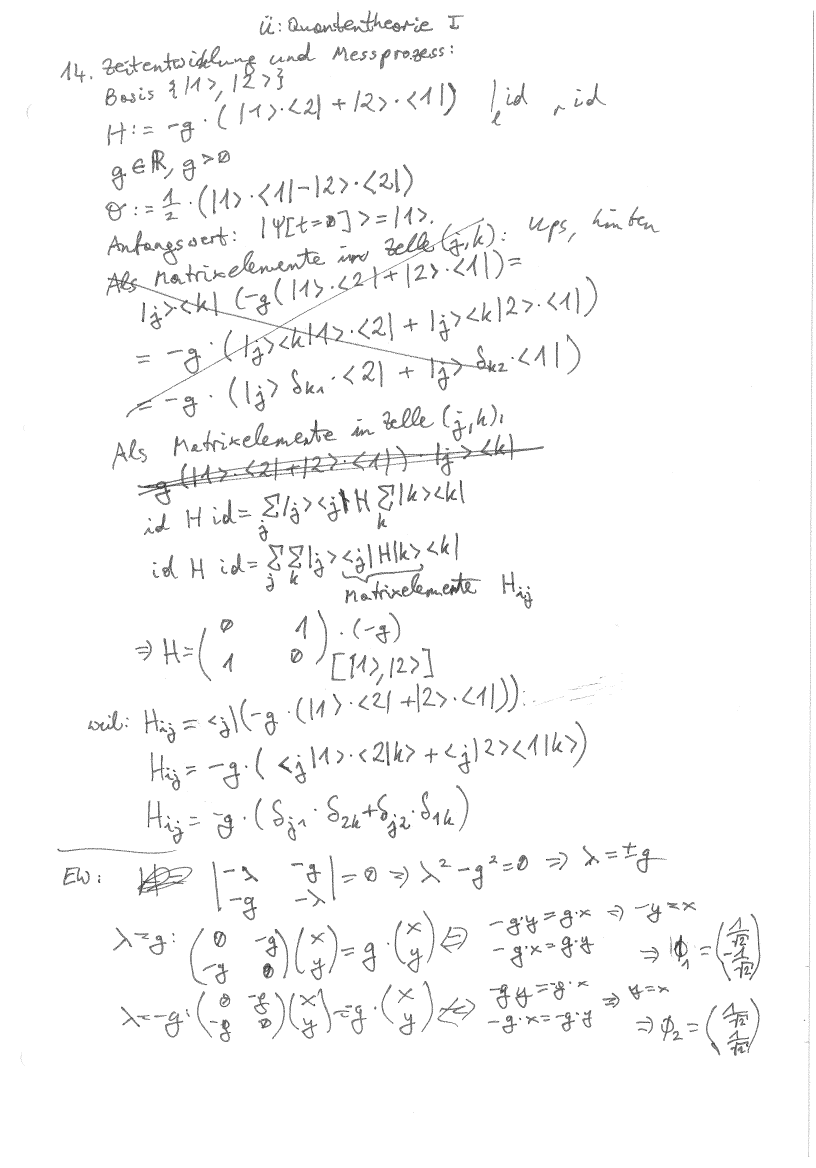 Ü: Quantentheorie I
14. Zeitentwicklung und Messprozess:
Basis {|1>, |2>}
H := -g · (|1>·<2| + |2>·<1|) |id r id
g ∈ ℝ, g > 0
O := 1/2 · (|1>·<1| - |2>·<2|)
Anfangswert: |Ψ[t=0]> = |1>.
Als Matrixelemente in Zelle (j,k): Ups, hinten
|j><k| (-g(|1>·<2| + |2>·<1|) =
= -g · (|j><k|1>·<2| + |j><k|2>·<1|)
= -g · (|j> δk1 · <2| + |j> δk2 · <1|)
Als Matrixelemente in Zelle (j,k),
-g (|1>·<2| + |2>·<1|) · |j><k|
id H id = Σj |j><j| H Σk |k><k|
id H id = Σj Σk |j> <j|H|k> <k|
Matrixelemente Hij
⇒ H = (0 1; 1 0) · (-g) [|1>, |2>]
weil: Hij = <j|(-g · (|1>·<2| + |2>·<1|)).
Hij = -g · (<j|1>·<2|k> + <j|2><1|k>)
Hij = -g · (δj1 · δ2k + δj2 · δ1k)
EW: |-λ -g; -g -λ| = 0 ⇒ λ² - g² = 0 ⇒ λ = ±g
λ = g: (0 -g; -g 0)(x; y) = g · (x; y) ⇔ -g·y = g·x ⇒ -y = x
-g·x = g·y ⇒ ϕ1 = (1/√2; -1/√2)
λ = -g: (0 -g; -g 0)(x; y) = -g · (x; y) ⇔ -gy = -g·x ⇒ y = x
-g·x = -g·y ⇒ ϕ2 = (1/√2; 1/√2)